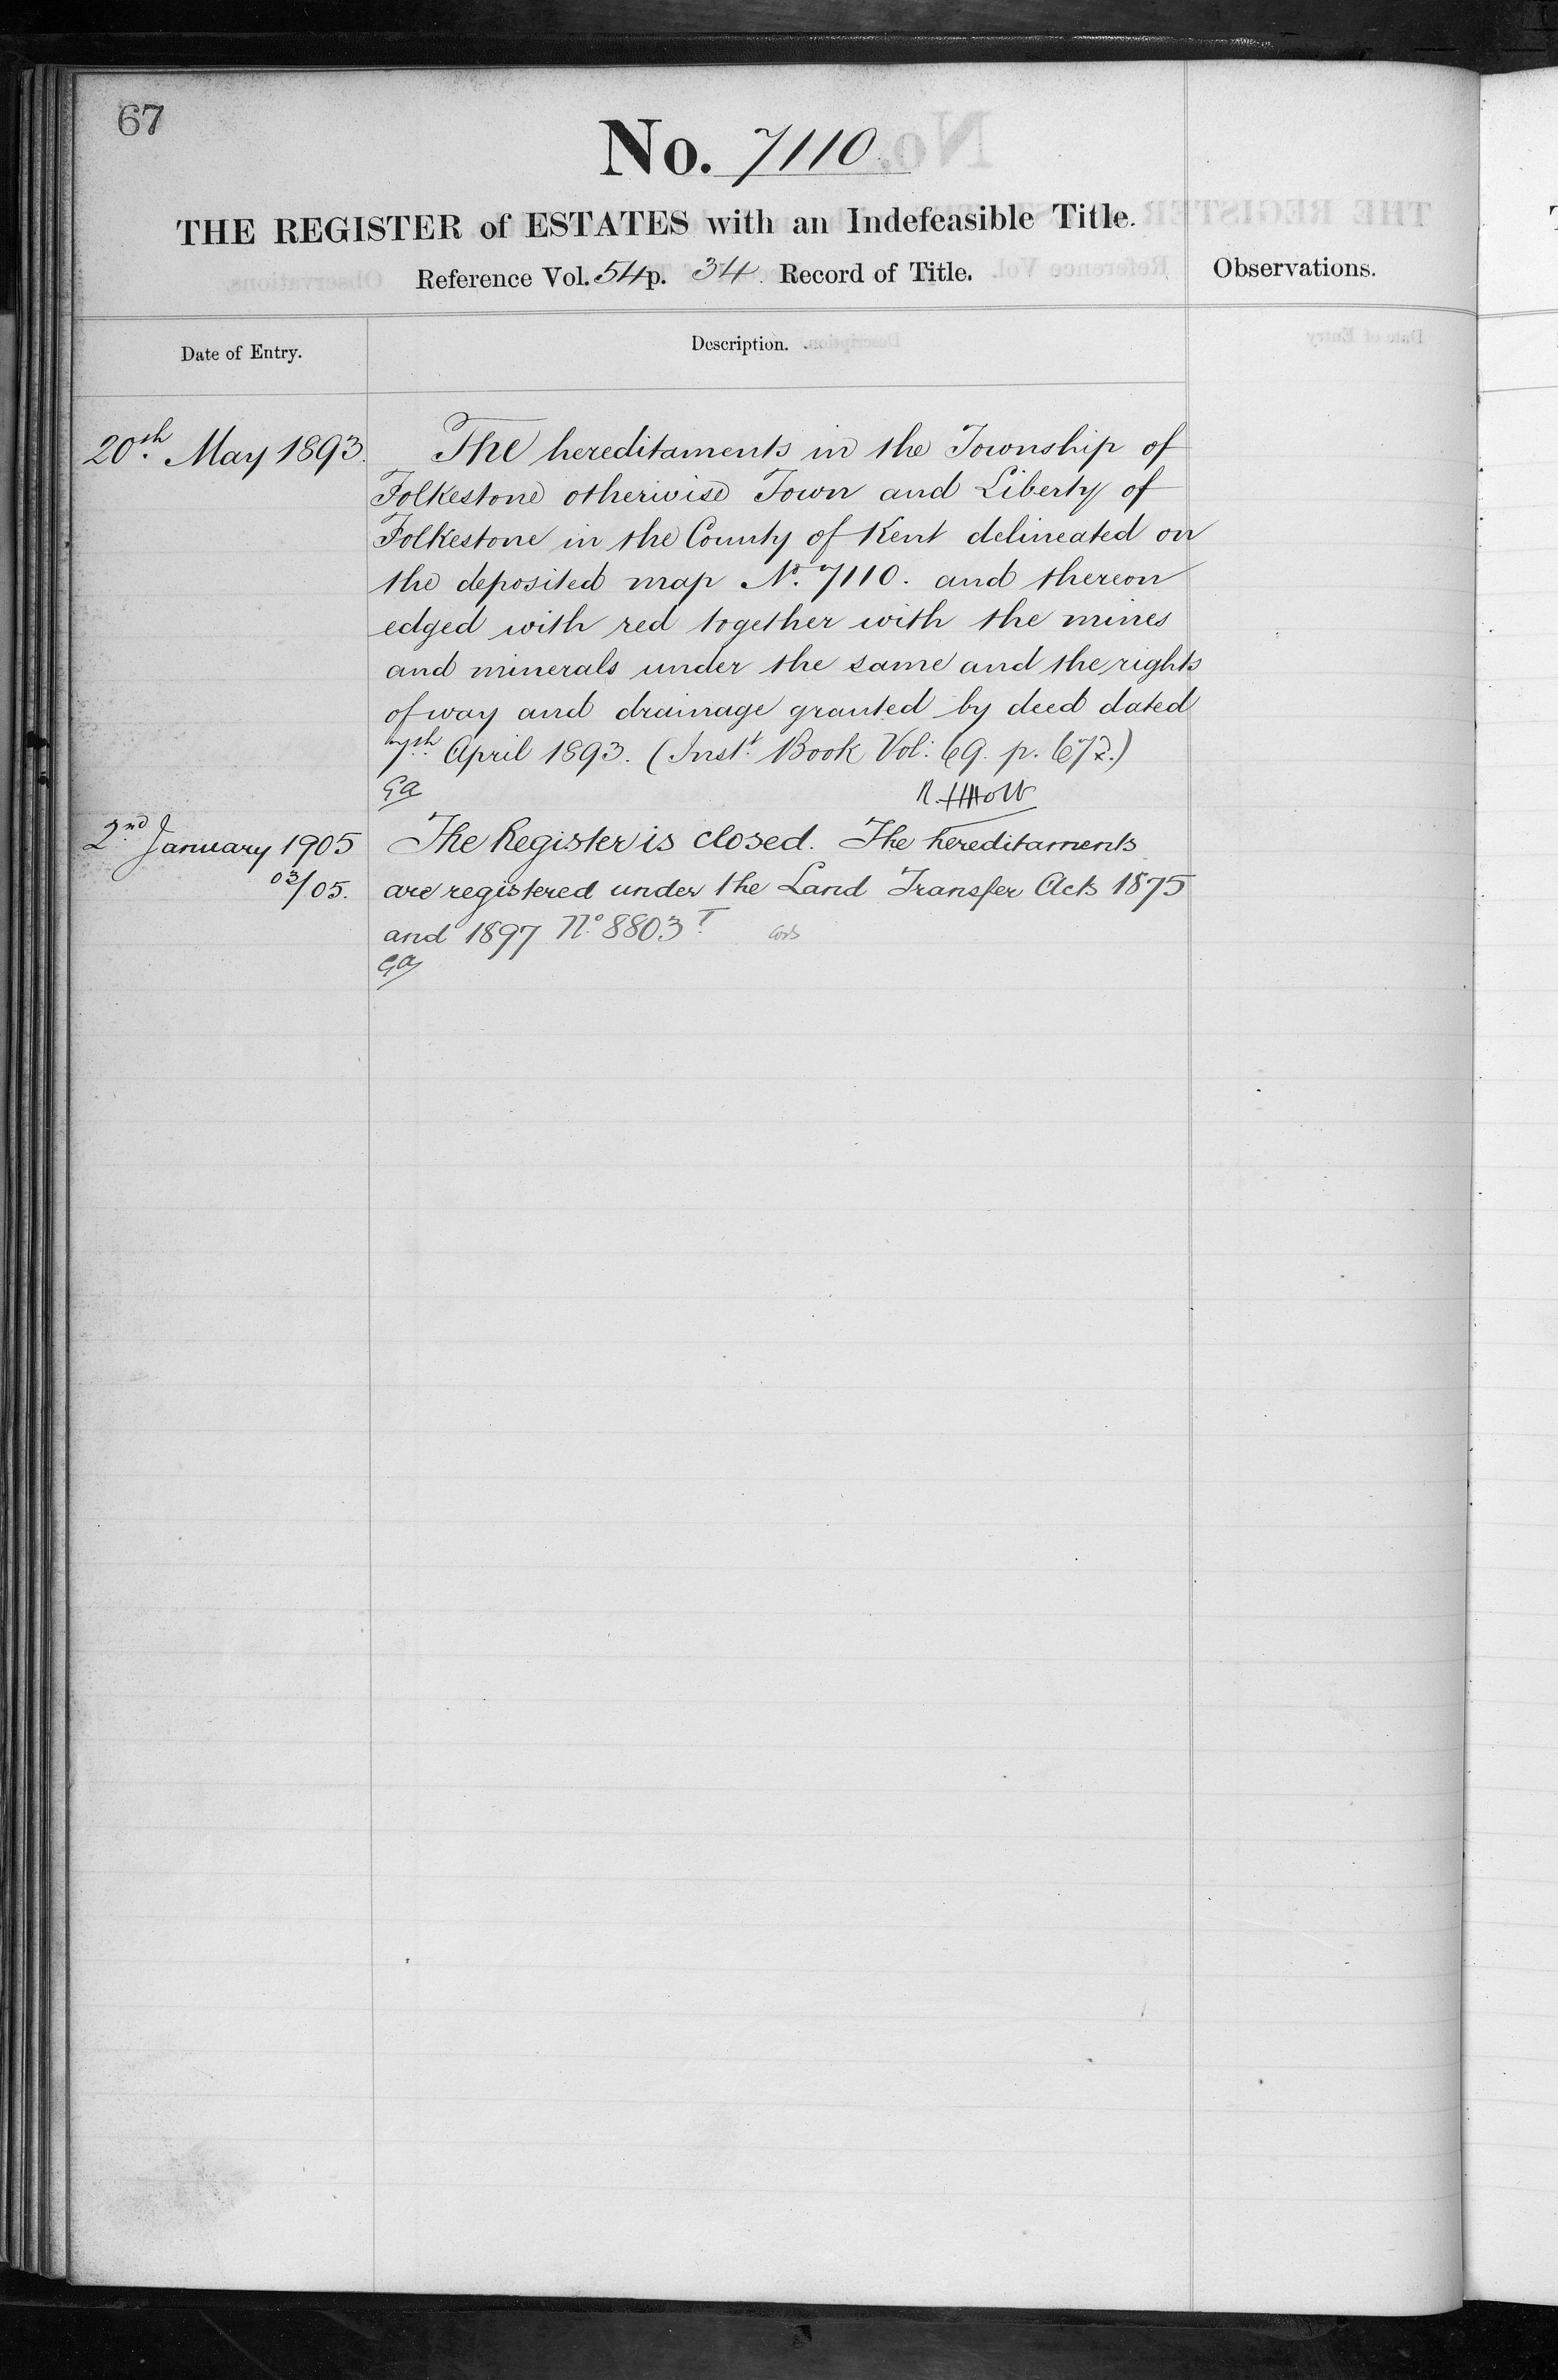 67
No. 7110
THE REGISTER of ESTATES with an Indefeasible Title.
Reference Vol. 54 p. 34. Record of Title.
Observations.
Date of Entry.
Description.
20th May 1893.
The hereditaments in the Township of
Folkestone otherwise Town and Liberty of
Folkestone in the County of Kent delineated on
the deposited map No. 7110. and thereon
edged with red together with the mines
and minerals under the same and the rights
of way and drainage granted by deed dated
7th April 1893. (Inst. Book Vol: 69. p. 672.)
GA
2nd January 1905
03/05.
The Register is closed. The hereditaments
are registered under the Land Transfer Acts 1875
and 1897 No. 8803
GA